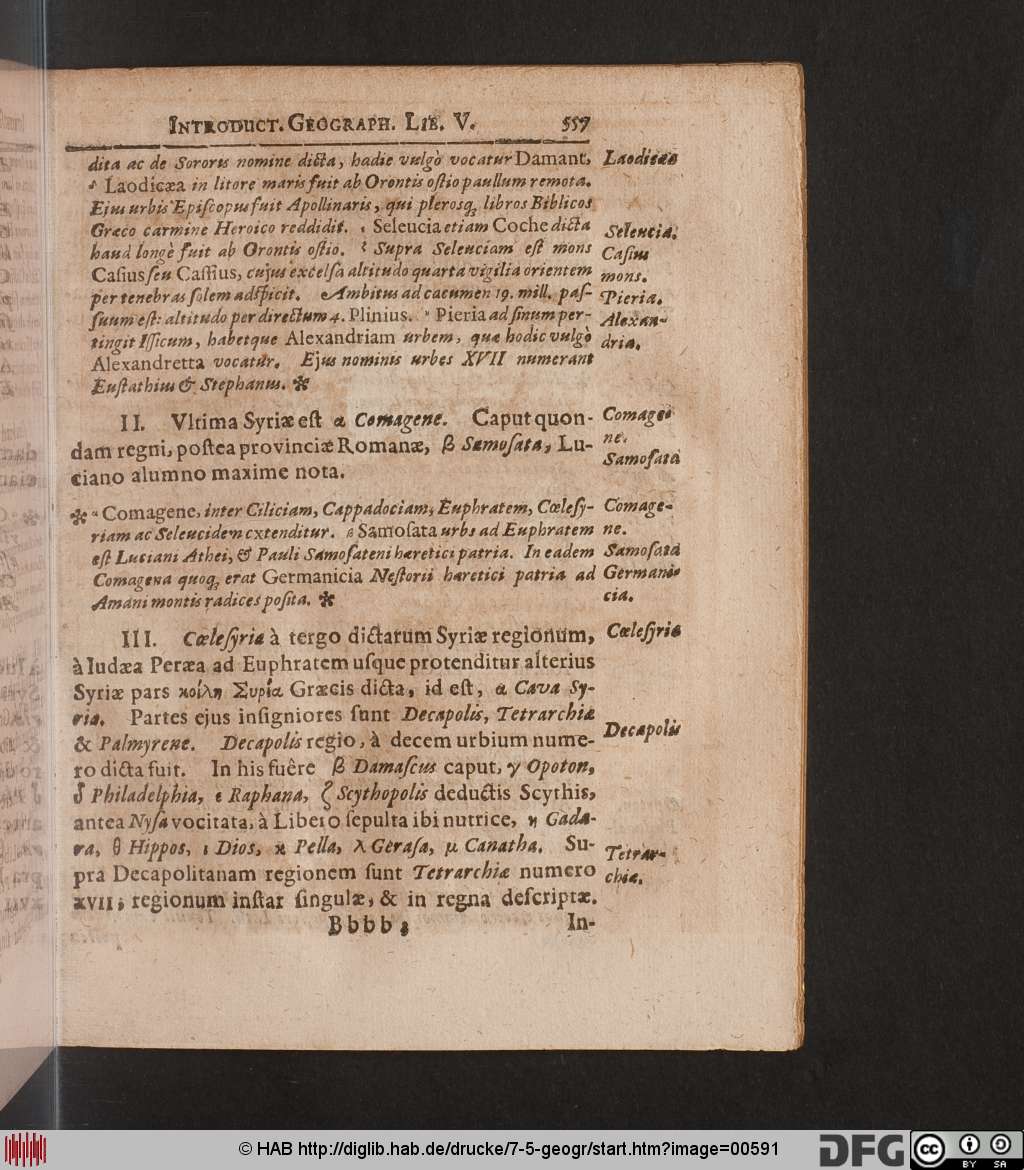 INTRODUCT. GEOGRAPH. LIB. V. 557
dita ac de Sororis nomine dicta, hadie vulgò vocatur Damant,
Laodicæa in litore maris fuit ab Orontis ostio paullum remota.
Ejus urbis Episcopus fuit Apollinaris, qui plerosq; libros Biblicos
Græco carmine Heroico reddidit. ε Seleucia etiam Coche dicta
haud longè fuit ab Orontis ostio. ζ Supra Seleuciam est mons
Casius seu Cassius, cujus excelsa altitudo quarta vigilia orientem
per tenebras solem adspicit. Ambitus ad cacumen 19. mill. pas-
suum est: altitudo per directum 4. Plinius. Pieria ad sinum per-
tingit Issicum, habetque Alexandriam urbem, quæ hodie vulgò
Alexandretta vocatur. Ejus nominis urbes XVII numerant
Eustathius & Stephanus. ✽
Laodicæa
Seleucia.
Casius
mons.
Pieria.
Alexan-
dria.
II. Vltima Syriæ est α Comagene. Caput quon-
dam regni, postea provinciæ Romanæ, β Samosata, Lu-
ciano alumno maxime nota.
Comage-
ne.
Samosata
✽ α Comagene, inter Ciliciam, Cappadociam, Euphratem, Cœlesy-
riam ac Seleucidem extenditur. β Samosata urbs ad Euphratem
est Luciani Athei, & Pauli Samosateni hæretici patria. In eadem
Comagena quoq; erat Germanicia Nestorii hæretici patria ad
Amani montis radices posita. ✽
Comage-
ne.
Samosata
Germani-
cia.
III. Cœlesyria à tergo dictarum Syriæ regionum,
à Iudæa Peræa ad Euphratem usque protenditur alterius
Syriæ pars κοίλη Συρία Græcis dicta, id est, α Cava Sy-
ria. Partes ejus insigniores sunt Decapolis, Tetrarchiæ
& Palmyrene. Decapolis regio, à decem urbium nume-
ro dicta fuit. In his fuêre β Damascus caput, γ Opoton,
δ Philadelphia, ε Raphana, ζ Scythopolis deductis Scythis,
antea Nysa vocitata, à Libero sepulta ibi nutrice, η Gada-
ra, θ Hippos, ι Dios, κ Pella, λ Gerasa, μ Canatha. Su-
pra Decapolitanam regionem sunt Tetrarchiæ numero
XVII, regionum instar singulæ, & in regna descriptæ.
Cœlesyria
Decapolis
Tetrar-
chiæ.
Bbbb 3 In-
© HAB http://diglib.hab.de/drucke/7-5-geogr/start.htm?image=00591
DFG
cc
BY SA